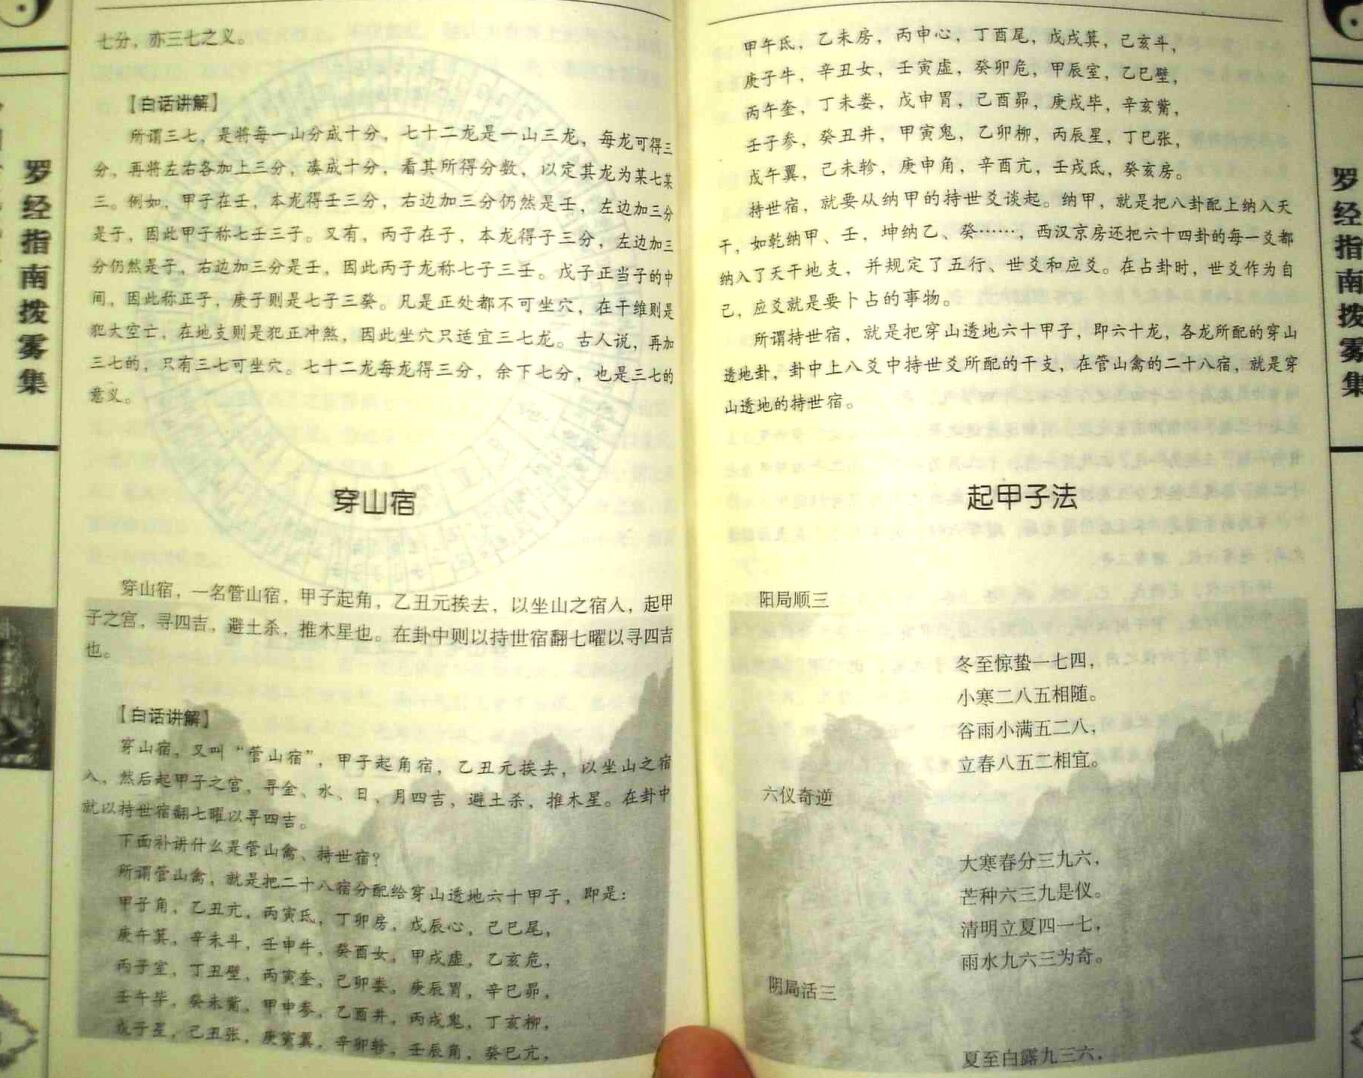 罗经指南拨雾集
七分，亦三七之义。
【白话讲解】
所谓三七，是将每一山分成十分，七十二龙是一山三龙，每龙可得三
分，再将左右各加上三分，凑成十分，看其所得分数，以定其龙为某七某
三。例如，甲子在壬，本龙得壬三分，右边加三分仍然是壬，左边加三分
是子，因此甲子称七壬三子。又有，丙子在子，本龙得子三分，左边加三
分仍然是子，右边加三分是壬，因此丙子龙称七子三壬。戊子正当子的中
间，因此称正子，庚子则是七子三癸。凡是正处都不可坐穴，在干维则是
犯大空亡，在地支则是犯正冲煞，因此坐穴只适宜三七龙。古人说，再加
三七的，只有三七可坐穴。七十二龙每龙得三分，余下七分，也是三七的
意义。
穿山宿
穿山宿，一名管山宿，甲子起角，乙丑元挨去，以坐山之宿入，起甲
子之宫，寻四吉，避土杀，推木星也。在卦中则以持世宿翻七曜以寻四吉
也。
【白话讲解】
穿山宿，又叫“管山宿”，甲子起角宿，乙丑元挨去，以坐山之宿
入，然后起甲子之宫，寻金、水、日、月四吉，避土杀，推木星。在卦中
就以持世宿翻七曜以寻四吉。
下面补讲什么是管山禽、持世宿？
所谓管山禽，就是把二十八宿分配给穿山透地六十甲子，即是：
甲子角，乙丑亢，丙寅氐，丁卯房，戊辰心，己巳尾，
庚午箕，辛未斗，壬申牛，癸酉女，甲戌虚，乙亥危，
丙子室，丁丑壁，丙寅奎，己卯娄，庚辰胃，辛巳昴，
壬午毕，癸未觜，甲申参，乙酉井，丙戌鬼，丁亥柳，
戊子星，己丑张，庚寅翼，辛卯轸，壬辰角，癸巳亢，
甲午氐，乙未房，丙申心，丁酉尾，戊戌箕，己亥斗，
庚子牛，辛丑女，壬寅虚，癸卯危，甲辰室，乙巳壁，
丙午奎，丁未娄，戊申胃，己酉昴，庚戌毕，辛亥觜，
壬子参，癸丑井，甲寅鬼，乙卯柳，丙辰星，丁巳张，
戊午翼，己未轸，庚申角，辛酉亢，壬戌氐，癸亥房。
持世宿，就要从纳甲的持世爻谈起。纳甲，就是把八卦配上纳入天
干，如乾纳甲、壬，坤纳乙、癸……，西汉京房还把六十四卦的每一爻都
纳入了天干地支，并规定了五行、世爻和应爻。在占卦时，世爻作为自
己，应爻就是要卜占的事物。
所谓持世宿，就是把穿山透地六十甲子，即六十龙，各龙所配的穿山
透地卦，卦中上八爻中持世爻所配的干支，在管山禽的二十八宿，就是穿
山透地的持世宿。
起甲子法
阳局顺三
冬至惊蛰一七四，
小寒二八五相随。
谷雨小满五二八，
立春八五二相宜。
六仪奇逆
大寒春分三九六，
芒种六三九是仪。
清明立夏四一七，
雨水九六三为奇。
阴局活三
夏至白露九三六，
罗经指南拨雾集